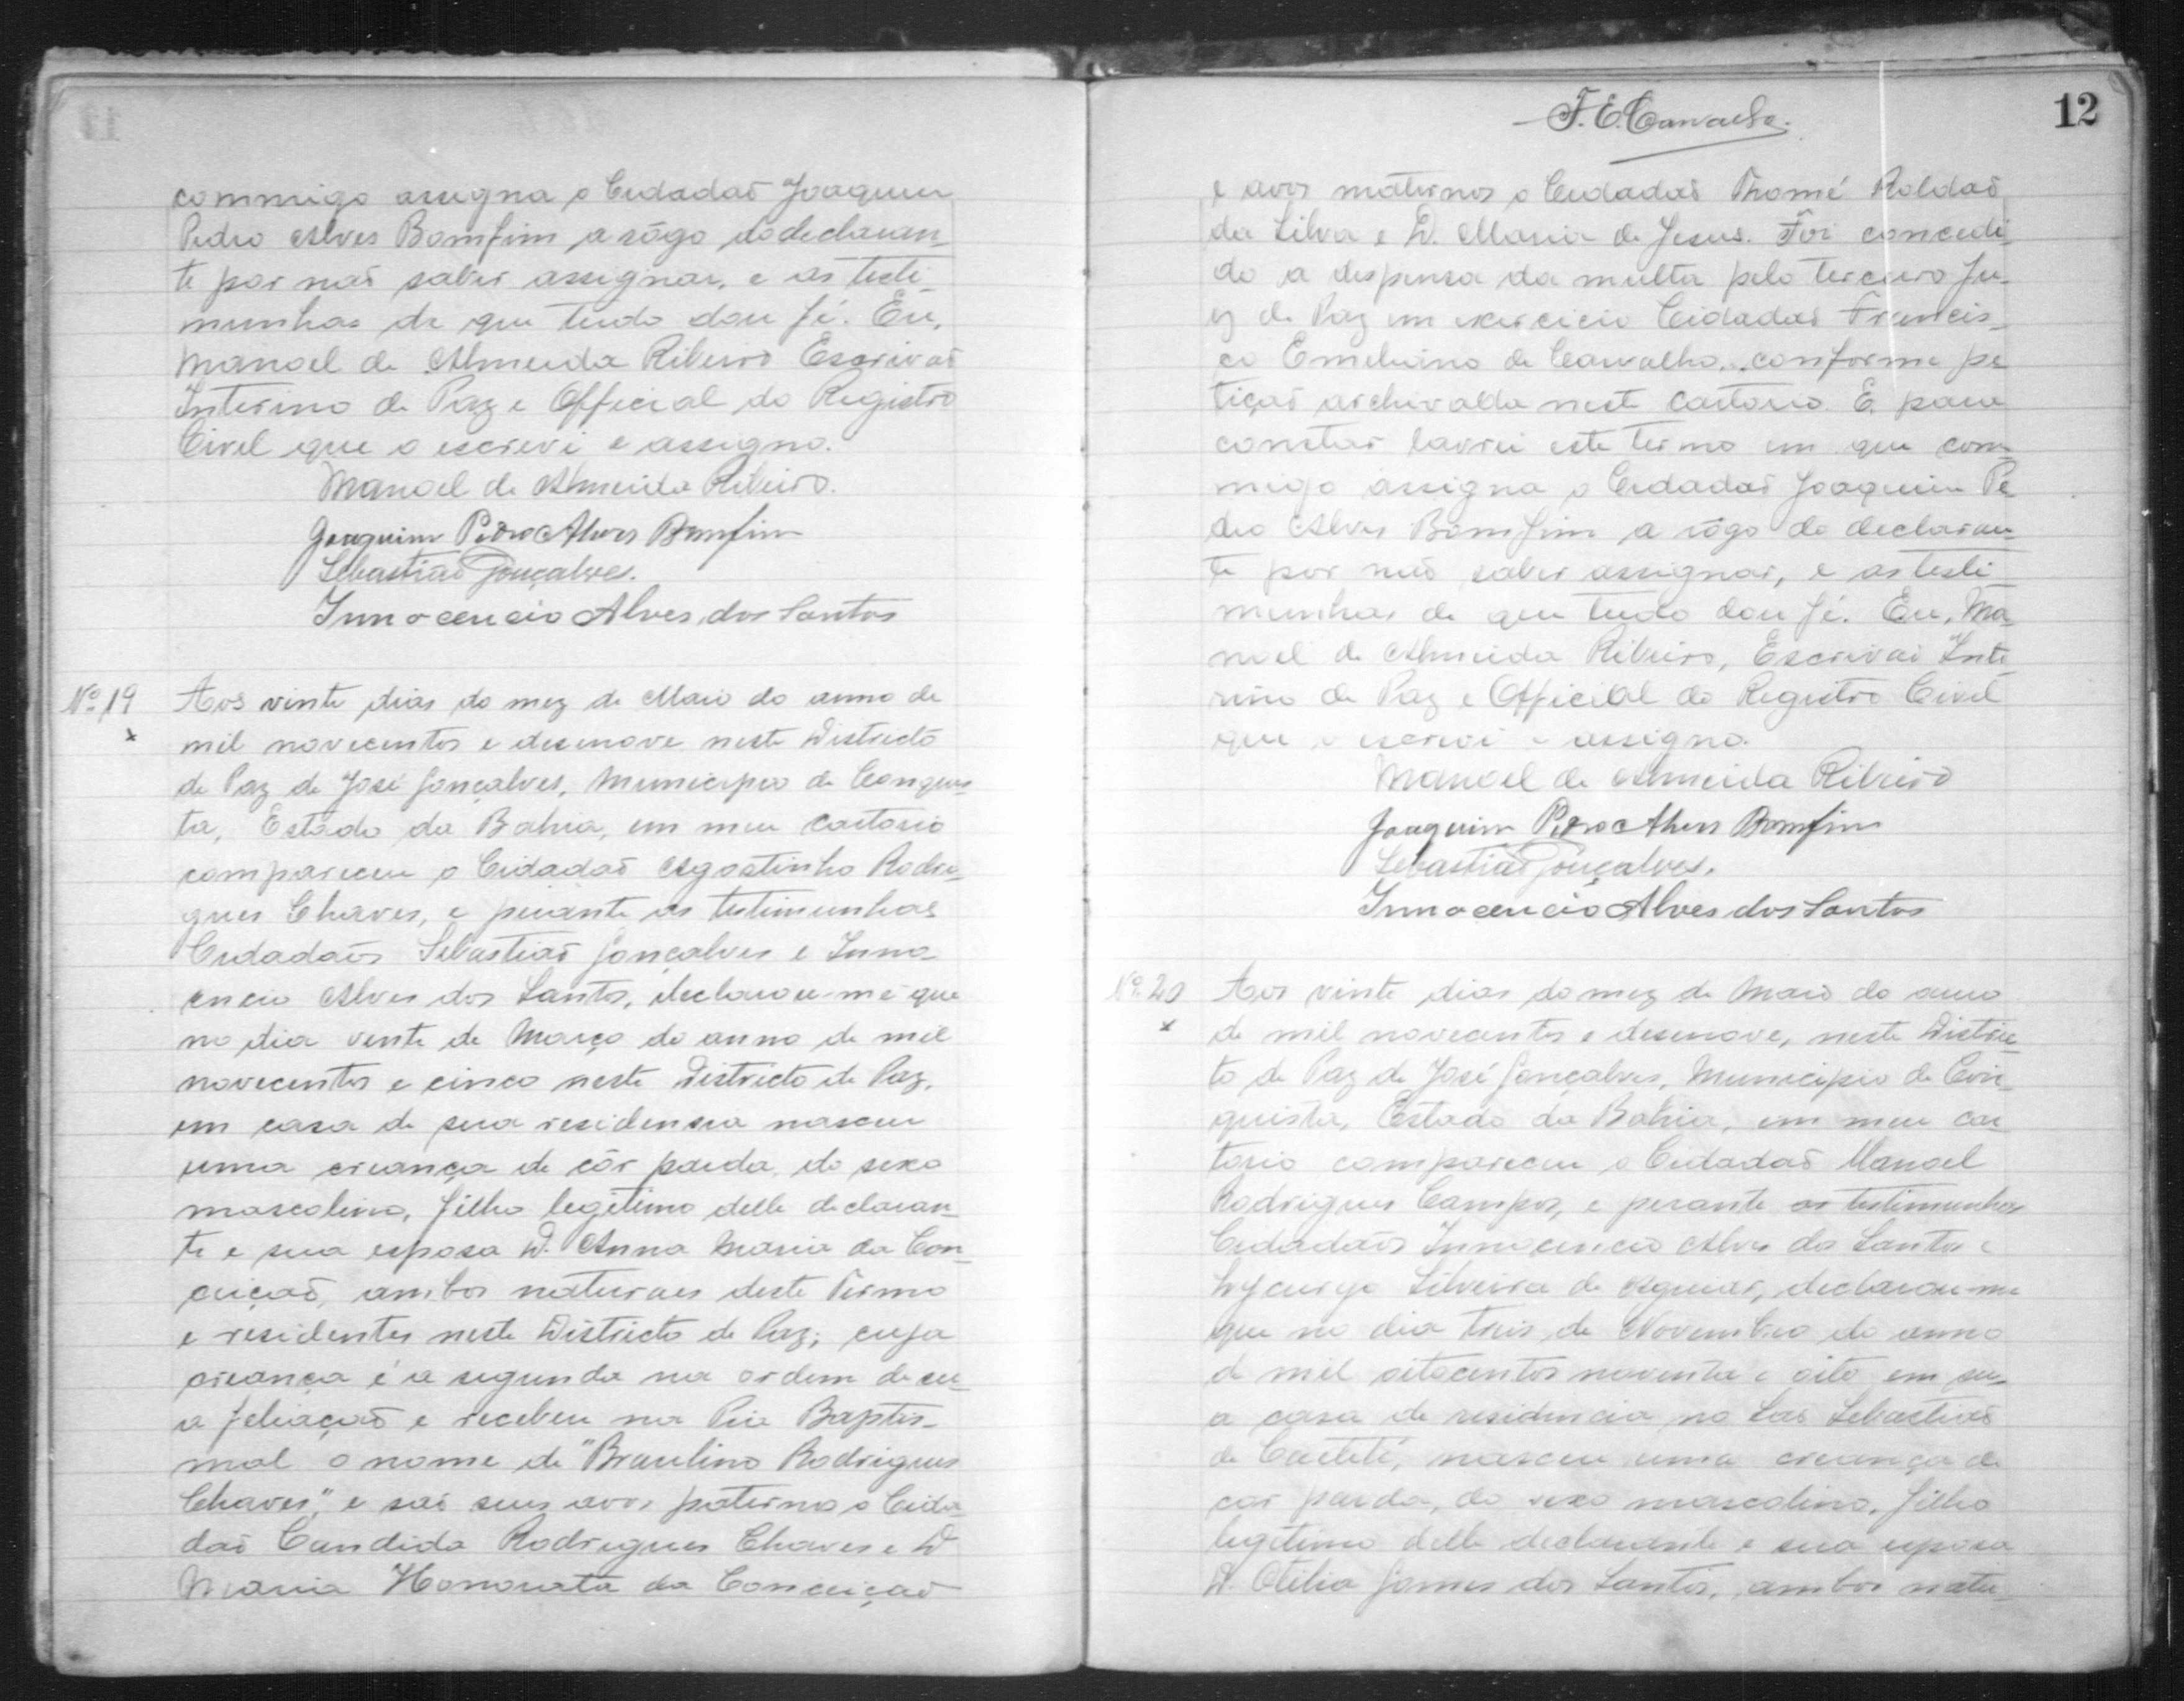 commigo assigna o Cidadaõ Joaquim
Pedro Alves Bomfim a rôgo do declaran_
te por naõ saber assignar, e as testi_
munhas de que tudo dou fé. Eu,
Manoel de Almeida Ribeiro Escrivaõ
Interino de Paz e Official do Registro
Civel que o escrevi e assigno.
Manoel de Almeida Ribeiro.
Joaquim Pedro Alves Bomfim
Sebastiaõ Gonçalves.
Innocencio Alves dos Santos
Nº 19
x
Aos vinte dias do mez de Maio do anno de
mil novecentos e desenove neste Districto
de Paz de José Gonçalves, Municipio de Conquis_
ta, Estado da Bahia, em meu cartorio
compareceu o Cidadaõ Agostinho Rodri_
gues Chaves, e perante as testimunhas
Cidadaõs Sebastiaõ Gonçalves e Inno
cencio Alves dos Santos, declarou-me que
no dia vinte de Março do anno de mil
novecentos e cinco neste Districto de Paz,
em casa de sua residensia nasceu
uma creança de côr parda, do sexo
mascolino, filho legitimo delle declaran_
te e sua esposa D. Anna Maria da Con_
ceiçaõ, ambos naturaes deste Termo
e residentes neste Districto de Paz; cuja
creança é a segunda na ordem de su_
a feliaçaõ e recebeu na Pia Baptis_
mal o nome de "Braulino Rodrigues
Chaves", e saõ seus avos paternos o Cida_
daõ Candido Rodrigues Chaves e D
Maria Honorata da Conceiçaõ
F. E. Carvalho.
12
e avos maternos o Cidadaõ Thomé Roldaõ
da Silva e D. Maria de Jesus. Foi concedi_
do a despensa da multa pelo terceiro Ju_
iz de Paz em exercicio Cidadaõ Francis_
co Emeliano de Carvalho, conforme pe_
tiçaõ archivada neste cartorio. E para
constar lavrei este termo em que com_
migo assigna o Cidadaõ Joaquim Pe_
dro Alves Bomfim a rôgo do declaran_
te por naõ saber assignar, e as testi_
munhas de que tudo dou fé. Eu, Ma_
noel de Almeida Ribeiro, Escrivaõ Inte
rino de Paz e Official do Registro Civel
que o escrevi e assigno.
Manoel de Almeida Ribeiro
Joaquim Pedro Alves Bomfim
Sebastiaõ Gonçalves.
Innocencio Alves dos Santos
Nº 20
x
Aos vinte dias do mez de Maio do anno
de mil novecentos e desenove, neste Distric_
to de Paz de José Gonçalves, Municipio de Con_
quista, Estado da Bahia, em meu car
torio compareceu o Cidadaõ Manoel
Rodrigues Campos, e perante as testimunhas
Cidadaõs Innocencio Alves dos Santos e
Lycurgo Silveira de Aguiar, declarou-me
que no dia treis de Novembro do anno
de mil oitocentos noventa e oito em su_
a casa de residencia no Saõ Sebastiaõ
de Caeteté, nasceu uma creança de
cor parda, do sexo mascolino, filho
legitimo delle declarante e sua esposa
D. Otilia Gomes dos Santos, ambos natu_